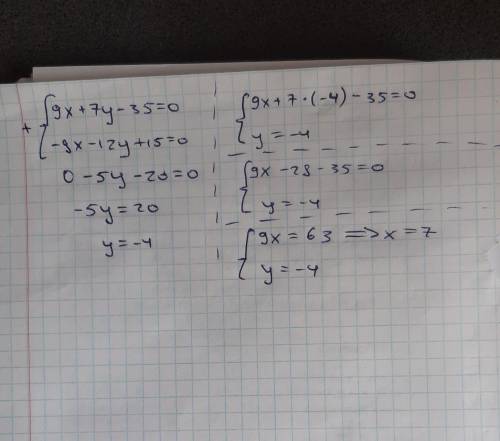 + { 9x+7y-35=0
-9x-12y+15=0
0 -5y-20=0
-5y=20
y=-4
{ 9x+7·(-4)-35=0
y=-4
{ 9x -28-35=0
y=-4
{ 9x=63 => x=7
y=-4